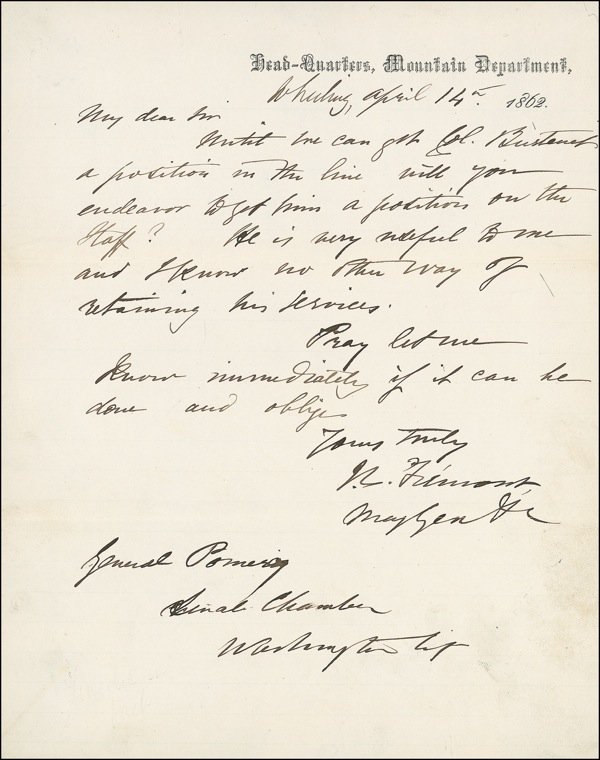 Head-Quarters, Mountain Department,
Wheeling, April 14th 1862.
My dear Sir
Until we can get Col.
a position in the line will you
endeavor to get him a position on the
Staff? He is very useful to me
and I know no other way of
retaining his services.
Pray let me
know immediately if it can be
done and oblige
Yours truly
J.C. Frémont
Maj Gen
General Pomeroy
Senate Chamber
Washington City